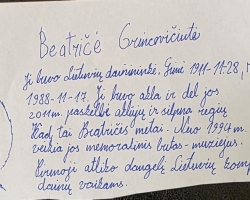 Beatričė Grincevičiūtė
Ji buvo Lietuvių dainininkė. Gimė 1911-11-28,
1988-11-17. Ji buvo akla ir dėl jos
2011m. paskelbė aklųjų ir silpna regių
Kad tai Beatričės metai. Nuo 1994m.
veikia jos memorialinis butas-muziejus.
Pirmoji atliko daugelį Lietuvių komp
dainų vaikams.